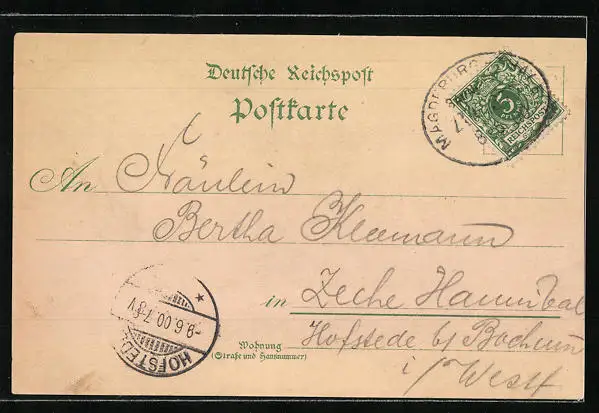 Deutsche Reichspost
Postkarte
MAGDEBURG
5
REICHSPOST
An Fräulein
Bertha Kleemann
in Zeche Hannibal
Hofstede b/ Bochum
i/ Westf
Wohnung
(Straße und Hausnummer)
HOFSTEDE
9.6.00.7-8V
*